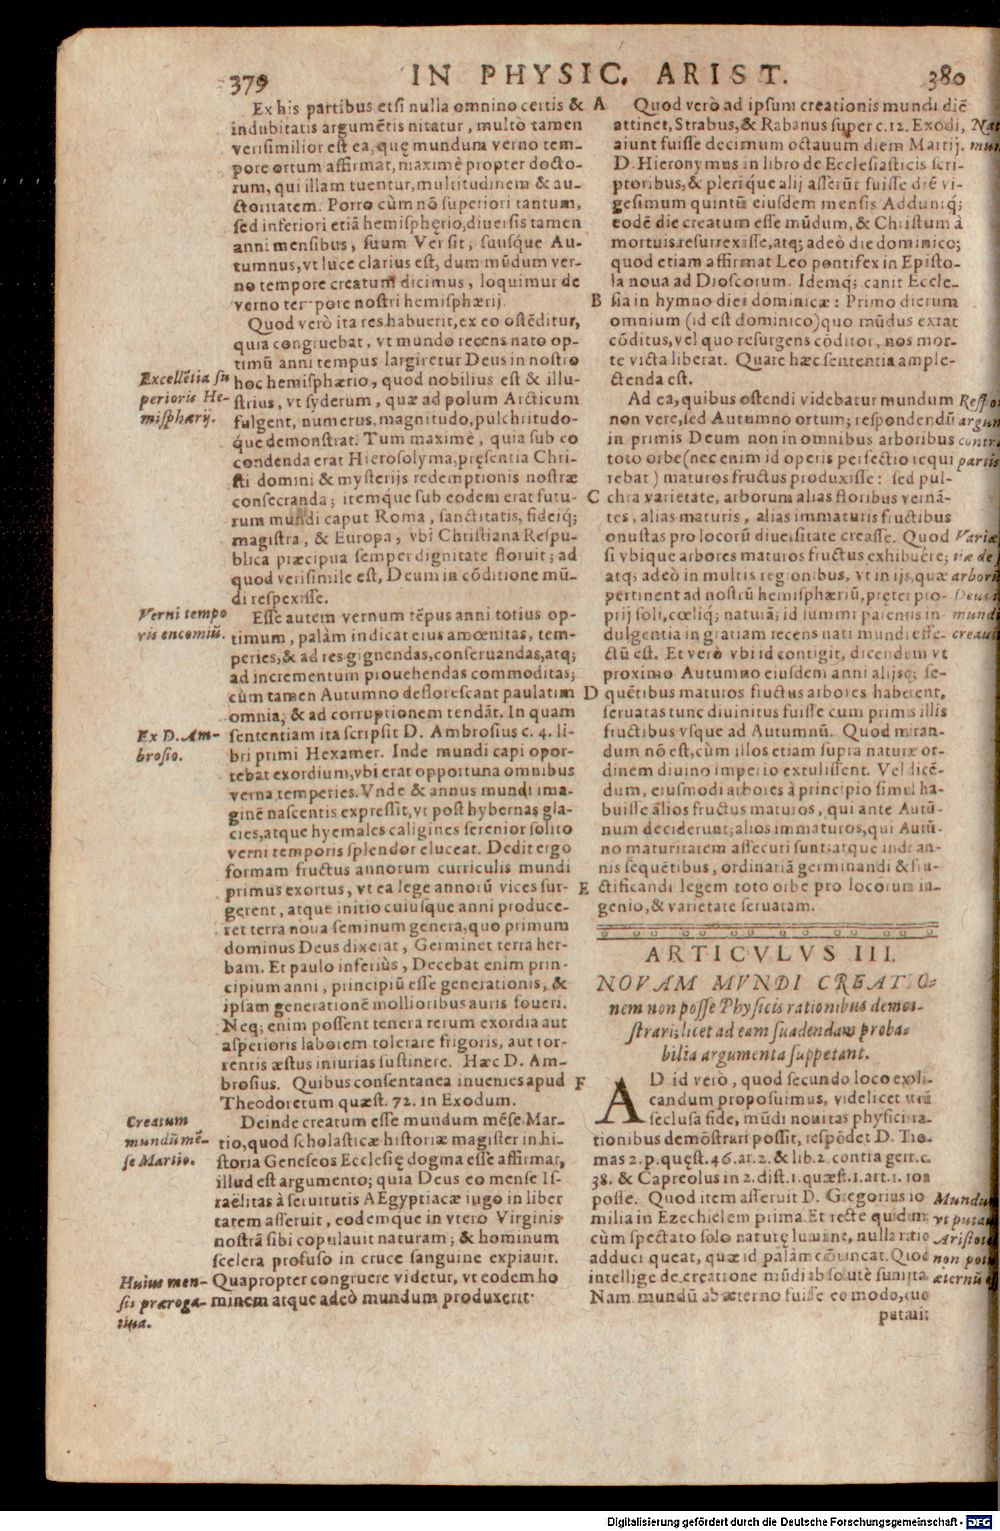 379 IN PHYSIC. ARIST. 380
Ex his partibus etsi nulla omnino certis &
indubitatis argumẽtis nitatur, multò tamen
verisimilior est ea, quę mundum verno tem-
pore ortum affirmat, maximè propter docto-
rum, qui illam tuentur, multitudinem & au-
ctoritatem. Porro cùm nõ superiori tantum,
sed inferiori etiã hemisphęrio, diuersis tamen
anni mensibus, suum Ver sit, suusque Au-
tumnus, vt luce clarius est, dum mũdum ver-
no tempore creatum dicimus, loquimur de
verno tempore nostri hemisphærij.
Quod verò ita res habuerit, ex eo ostẽditur,
quia congruebat, vt mundo recens nato op-
timũ anni tempus largiretur Deus in nostro
hoc hemisphærio, quod nobilius est & illu-
strius, vt syderum, quæ ad polum Arcticum
fulgent, numerus, magnitudo, pulchritudo-
que demonstrat. Tum maximè, quia sub eo
condenda erat Hierosolyma, pręsentia Chri-
sti domini & mysterijs redemptionis nostræ
consecranda; itemque sub eodem erat futu-
rum mundi caput Roma, sanctitatis, fideiq;
magistra, & Europa, vbi Christiana Respu-
blica præcipua semper dignitate floruit; ad
quod verisimile est, Deum in cõditione mũ-
di respexisse.
Esse autem vernum tẽpus anni totius op-
timum, palàm indicat eius amœnitas, tem-
peries, & ad res gignendas, conseruandas, atq;
ad incrementum prouehendas commoditas;
cùm tamen Autumno deflorescant paulatim
omnia, & ad corruptionem tendãt. In quam
sententiam ita scripsit D. Ambrosius c. 4. li-
bri primi Hexamer. Inde mundi capi opor-
tebat exordium, vbi erat opportuna omnibus
verna temperies. Vnde & annus mundi ima-
ginẽ nascentis expressit, vt post hybernas gla-
cies, atque hyemales caligines serenior solito
verni temporis splendor eluceat. Dedit ergo
formam fructus annorum curriculis mundi
primus exortus, vt ea lege annorũ vices sur-
gerent, atque initio cuiusque anni produce-
ret terra noua seminum genera, quo primum
dominus Deus dixerat, Germinet terra her-
bam. Et paulo inferiùs, Decebat enim prin-
cipium anni, principiũ esse generationis, &
ipsam generationẽ mollioribus auris foueri.
Neq; enim possent tenera rerum exordia aut
asperioris laborem tolerare frigoris, aut tor-
rentis æstus iniurias sustinere. Hæc D. Am-
brosius. Quibus consentanea inuenies apud
Theodoretum quæst. 72. in Exodum.
Deinde creatum esse mundum mẽse Mar-
tio, quod scholasticæ historiæ magister in hi-
storia Geneseos Ecclesię dogma esse affirmat,
illud est argumento; quia Deus eo mense Is-
raëlitas à seruitutis AEgyptiacæ iugo in liber
tatem asseruit, eodemque in vtero Virginis
nostrã sibi copulauit naturam; & hominum
scelera profuso in cruce sanguine expiauit.
Quapropter congruere videtur, vt eodem ho
minem atque adeò mundum produxerit.
Excellẽtia su
perioris He-
misphærij.
Verni tempo
ris encomiũ.
Ex D. Am-
brosio.
Creatum
mundũ mẽ-
se Martio.
Huius men-
sis præroga-
tiua.
A
B
C
D
E
F
Quod verò ad ipsum creationis mundi diẽ
attinet, Strabus, & Rabanus super c. 12. Exodi,
aiunt fuisse decimum octauum diem Martij.
D. Hieronymus in libro de Ecclesiasticis scri-
ptoribus, & plerique alij asserũt fuisse diẽ vi-
gesimum quintũ eiusdem mensis Adduntq;
eodẽ die creatum esse mũdum, & Christum à
mortuis resurrexisse, atq; adeò die dominico;
quod etiam affirmat Leo pontifex in Episto-
la noua ad Dioscorum. Idemq; canit Eccle-
sia in hymno diei dominicæ: Primo dierum
omnium (id est dominico) quo mũdus extat
cõditus, vel quo resurgens cõditor, nos mor-
te victa liberat. Quare hæc sententia ample-
ctenda est.
Ad ea, quibus ostendi videbatur mundum
non vere, sed Autumno ortum; respondendũ
in primis Deum non in omnibus arboribus
toto orbe (nec enim id operis perfectio requi
rebat) maturos fructus produxisse: sed pul-
chra varietate, arborum alias floribus vernã-
tes, alias maturis, alias immaturis fructibus
onustas pro locorũ diuersitate creasse. Quod
si vbique arbores maturos fructus exhibuêre;
atq; adeò in multis regionibus, vt in ijs, quæ
pertinent ad nostrũ hemisphæriũ, pręter pro-
prij soli, cœliq; naturã; id summi parentis in-
dulgentia in gratiam recens nati mundi effe-
ctũ est. Et verò vbi id contigit, dicendum vt
proximo Autumno eiusdem anni alijsq; se-
quẽtibus maturos fructus arbores haberent,
seruatas tunc diuinitus fuisse cum primis illis
fructibus vsque ad Autumnũ. Quod miran-
dum nõ est, cùm illos etiam supra naturæ or-
dinem diuino imperio extulissent. Vel dicẽ-
dum, eiusmodi arbores à principio simul ha-
buisse ãlios fructus maturos, qui ante Autũ-
num deciderunt; alios immaturos, qui Autũ-
no maturitatem assecuti sunt: atque inde an-
nis sequẽtibus, ordinariã germinandi & fru-
ctificandi legem toto orbe pro locorum in-
genio, & varietate seruatam.
ARTICVLVS III.
NOVAM MVNDI CREATIO-
nem non posse Physicis rationibus demon-
strari; licet ad eam suadendam proba-
bilia argumenta suppetant.
AD id verò, quod secundo loco expli-
candum proposuimus, videlicet vtrũ
seclusa fide, mũdi nouitas physicis ra-
tionibus demõstrari possit, respõdet D. Tho-
mas 2. p. quęst. 46. ar. 2. & lib. 2. contra gent. c.
38. & Capreolus in 2. dist. 1. quæst. 1. art. 1. non
posse. Quod item asseruit D. Gregorius ho
milia in Ezechielem prima. Et recte quidem
cùm spectato solo naturę lumine, nulla ratio
adduci queat, quæ id palàm cõuincat. Quod
intellige de creatione mũdi absolutè sumpta
Nam mundũ ab æterno fuisse eo modo, quo
putaui:
Nat
mun
Respo
argum
contr
partis
Variæ
tiæ de
arbori
Deus i
mundi
creaui
Mundu
vt puta
Aristot
non pot
æternũ e
Digitalisierung gefördert durch die Deutsche Forschungsgemeinschaft - DFG